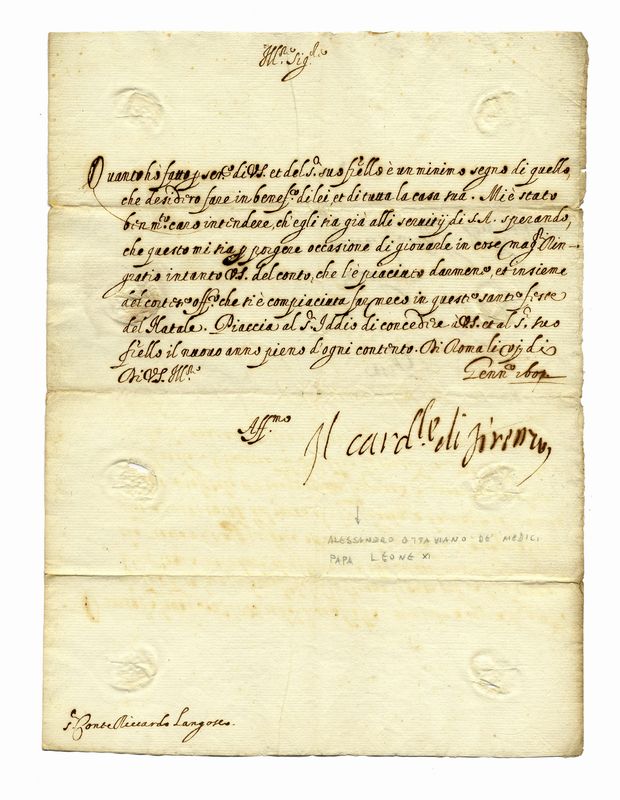 Ill.re Sig.re
Quanto hò fatto p ser.o di V.S. et del S.r suo f'ello è un minimo segno di quello,
che desidero fare in benef.o di lei et di tutta la casa sua. Mi è stato
ben m.to caro intendere, ch'egli sia già alli servitij di S.A. sperando,
che questo mi sia p porgere occasione di giovarle in cose mag.ri Rin-
gratio intanto V.S. del conto, che l'è piaciuto darmene, et insieme
del cortese off.o che si è compiaciuta far meco in queste sante feste
del Natale. Piaccia al S.r Iddio di concedere à V.S. et al S.r suo
f'ello il nuovo anno pieno d'ogni contento. Di Roma li vij di
Di V.S. Ill.re Genn.o
Aff.mo
Il card.le di firenze
ALESSANDRO OTTAVIANO DE' MEDICI
PAPA LEONE XI
S.r Conte Riccardo Langosco.